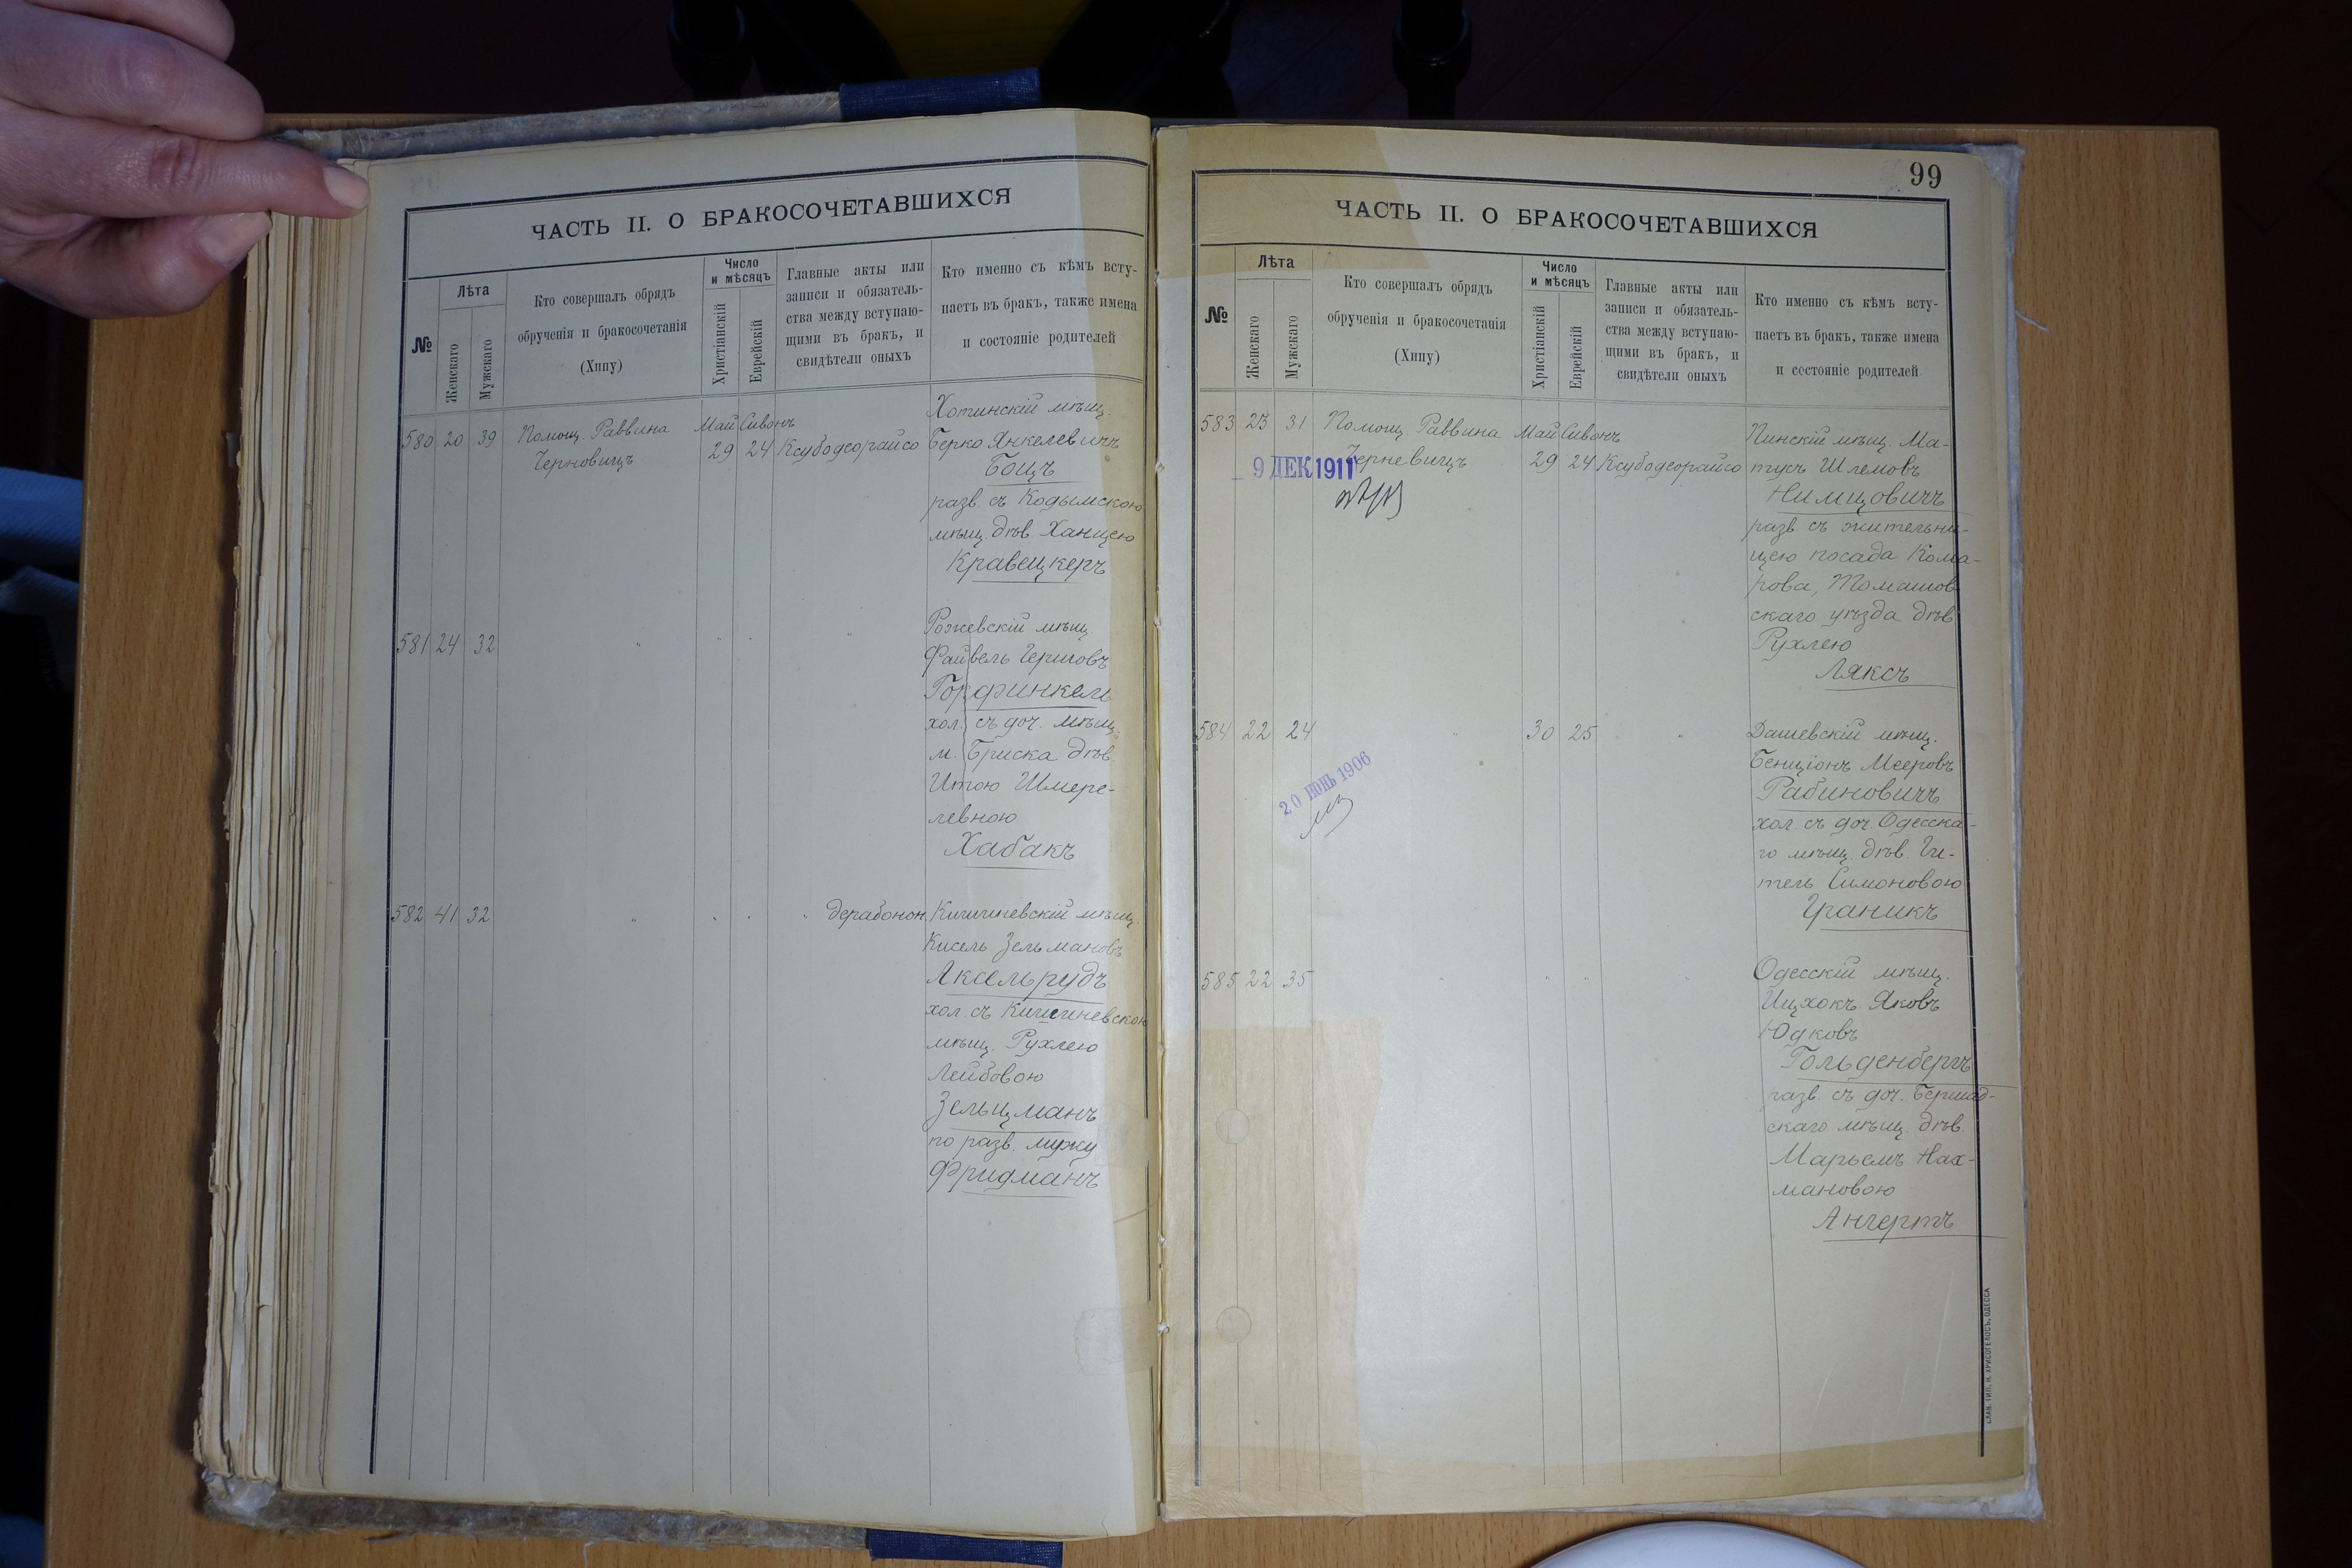 ЧАСТЬ II. О БРАКОСОЧЕТАВШИХСЯ
№
Лѣта
Женскаго
Мужскаго
Кто совершалъ обрядъ
обрученія и бракосочетанія
(Хипу)
Число
и мѣсяцъ
Христіанскій
Еврейскій
Главные акты или
записи и обязатель-
ства между вступаю-
щими въ бракъ, и
свидѣтели оныхъ
Кто именно съ кѣмъ всту-
паетъ въ бракъ, также имена
и состояніе родителей
580 20 39
Помощ. Раввина
Черновицъ
Май Сивонъ
29 24
Ксубодеорайсо
Хотинскій мѣщ.
Берко Янкелевичъ
Бощъ
разв. съ Кодымскою
мѣщ. дѣв. Ханцею
Кравецкеръ
581 24 32
" " " "
Рожевскій мѣщ.
Файвель Гершовъ
Горфинкель
хол. съ доч. мѣщ.
м. Бриска дѣв.
Итою Шмере-
левною
Хабакъ
582 41 32
" " " " дерабонон
Кишиневскій мѣщ.
Кисель Зельмановъ
Аксельрудъ
хол. съ Кишиневскою
мѣщ. Рухлею
Лейбовою
Зельцманъ
по разв. мужу
Фридманъ
99
ЧАСТЬ II. О БРАКОСОЧЕТАВШИХСЯ
№
Лѣта
Женскаго
Мужскаго
Кто совершалъ обрядъ
обрученія и бракосочетанія
(Хипу)
Число
и мѣсяцъ
Христіанскій
Еврейскій
Главные акты или
записи и обязатель-
ства между вступаю-
щими въ бракъ, и
свидѣтели оныхъ
Кто именно съ кѣмъ всту-
паетъ въ бракъ, также имена
и состояніе родителей
583 23 31
Помощ Раввина
Черневицъ
9 ДЕК 1911
Май Сивонъ
29 24
Ксубодеорайсо
Пинскій мѣщ. Ма-
тусъ Шлемовъ
Нимцовичъ
разв съ жительни-
цею посада Кома-
рова, Томашов
скаго уѣзда дѣв
Рухлею
Ляксъ
584 22 24
" 30 25 "
20 ІЮНЬ 1906
Дашевскій мѣщ.
Бенціонъ Мееровъ
Рабиновичъ
хол. съ доч. Одесска-
го мѣщ. дѣв. Ги-
тель Симоновою
Граникъ
585 22 35
" " " "
Одесскій мѣщ.
Ицхокъ Яковъ
Юдковъ
Гольденбергъ
разв. съ доч. Бершад-
скаго мѣщ. дѣв.
Марьемъ Нах-
мановою
Ангертъ
СЛАВ. ТИП. Н. ХРИСОГЕЛОСЪ, ОДЕССА